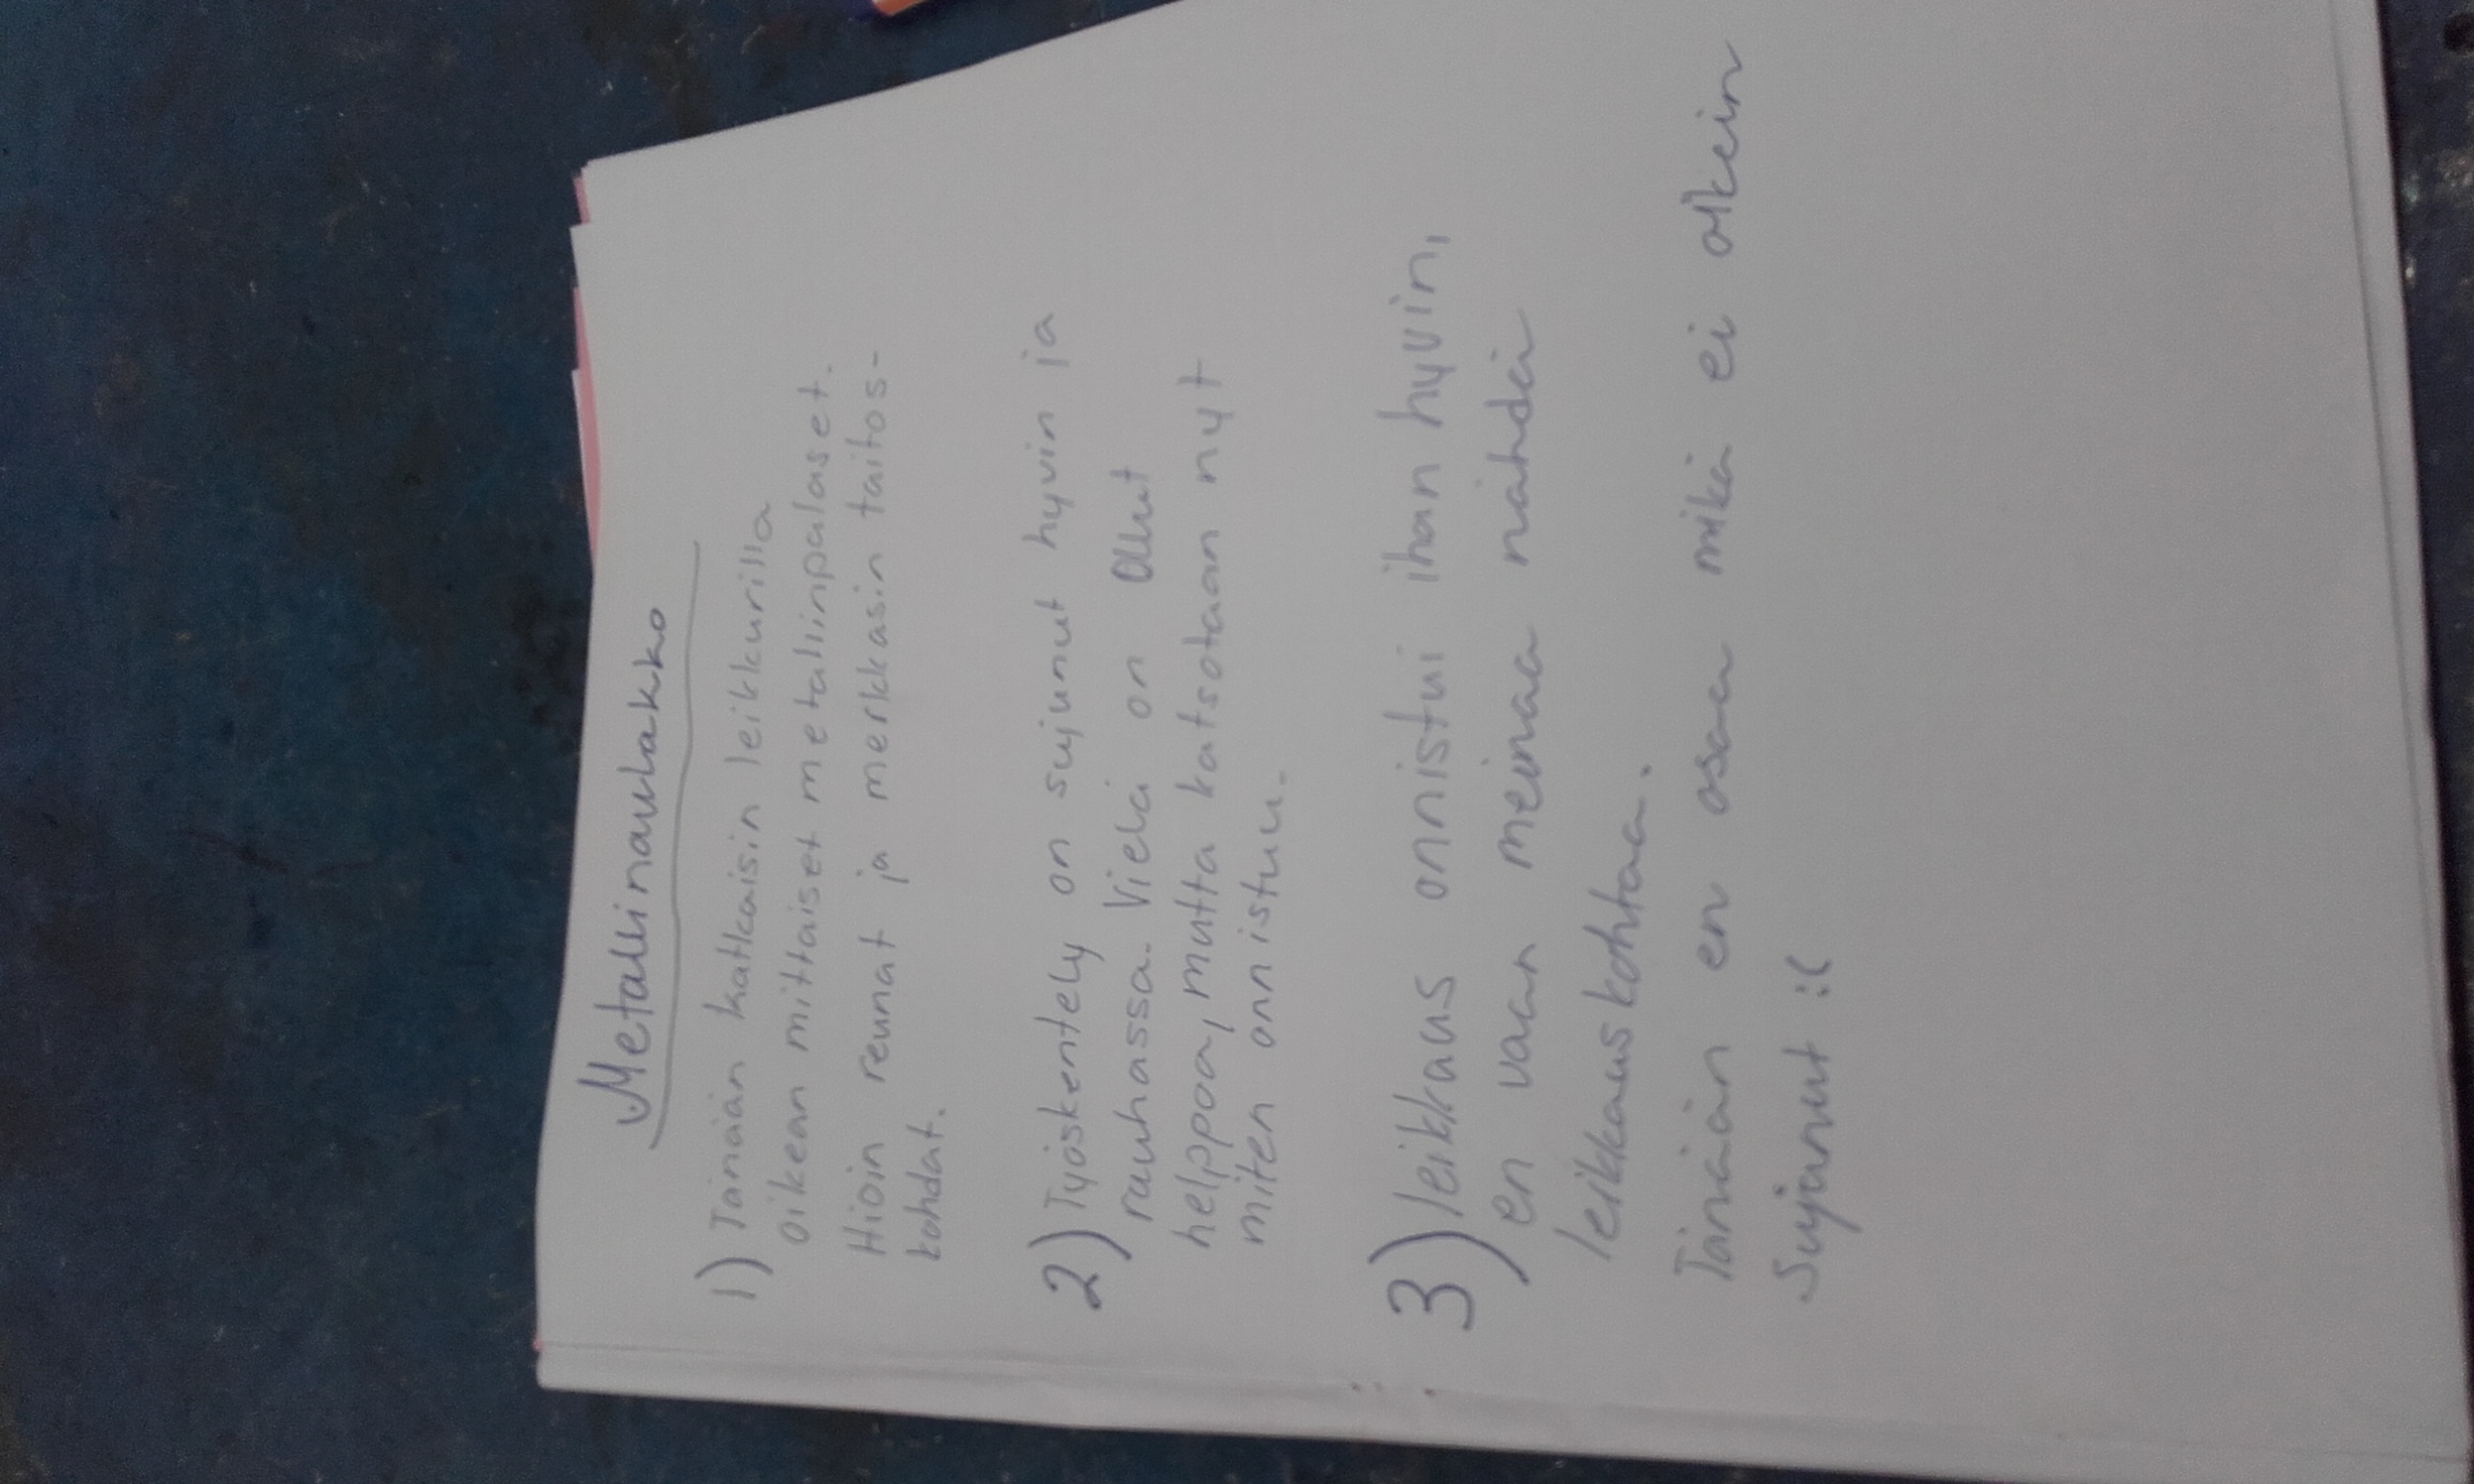 Metallinaulakko
1) Tänään katkaisin leikkurilla
oikean mittaiset metallinpalaset.
Hioin reunat ja merkkasin taitos-
kohdat.
2) Työskentely on sujunut hyvin ja
rauhassa. Vielä on ollut
helppoa, mutta katsotaan nyt
miten onnistuu.
3) leikkaus onnistui ihan hyvin,
en vaan meinaa nähdä
leikkauskohtaa.
Tänään en osaa mikä ei oikein
Sujunut :(